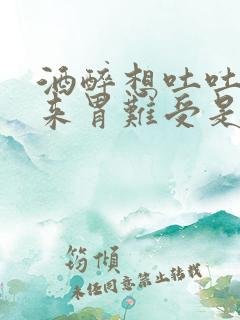 酒醉想吐吐
来胃难受是
筠傾
未经同意禁止转载